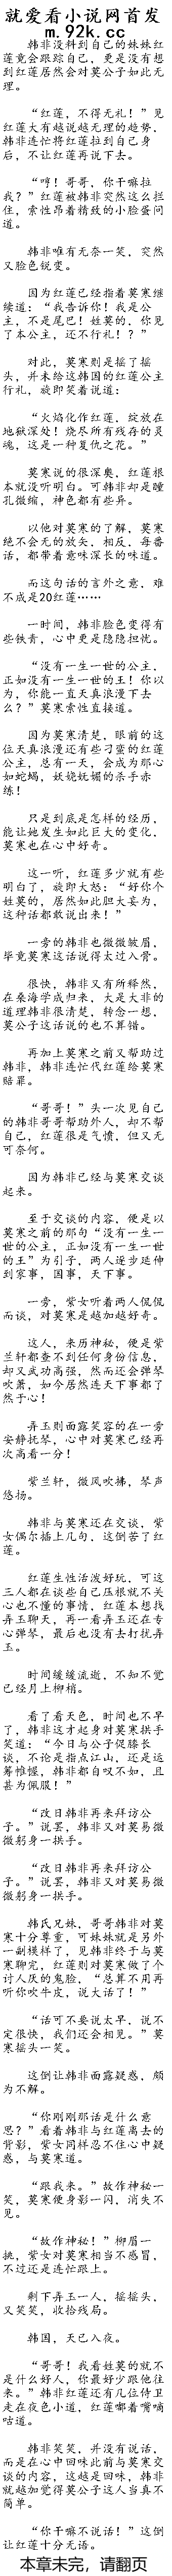 就爱看小说网首发
m.92k.cc
韩非没料到自己的妹妹红
莲竟会跟踪自己，更是没有想
到红莲居然会对莫公子如此无
理。
“红莲，不得无礼！”见
红莲大有越说越无理的趋势，
韩非连忙将红莲拉到自己身
后，不让红莲再说下去。
“哼！哥哥，你干嘛拉
我？”红莲被韩非突然这么拦
住，索性昂着精致的小脸蛋问
道。
韩非唯有无奈一笑，突然
又脸色锐变。
因为红莲已经指着莫寒继
续道：“我告诉你！我是公
主，不是尾巴！姓莫的，你见
了本公主，还不行礼！？”
对此，莫寒则是摇了摇
头，并未给这韩国的红莲公主
行礼，旋即笑着说道：
“火焰化作红莲，绽放在
地狱深处！烧尽所有残存的灵
魂，这是一种复仇之花。”
莫寒说的很深奥，红莲根
本就没听明白。可韩非却是瞳
孔微缩，神色都有些异。
以他对莫寒的了解，莫寒
绝不会无的放矢，相反，每番
话，都带着意味深长的味道。
而这句话的言外之意，难
不成是20红莲……
一时间，韩非脸色变得有
些铁青，心中更是隐隐担忧。
“没有一生一世的公主，
正如没有一生一世的王！你以
为，你能一直天真浪漫下去
么？”莫寒索性直接道。
因为莫寒清楚，眼前的这
位天真浪漫还有些刁蛮的红莲
公主，总有一天，会成为那心
如蛇蝎，妖娆妩媚的杀手赤
练！
只是到底是怎样的经历，
能让她发生如此巨大的变化，
莫寒也在心中好奇。
这一听，红莲多少就有些
明白了，旋即大怒：“好你个
姓莫的，居然如此胆大妄为，
这种话都敢说出来！”
一旁的韩非也微微皱眉，
毕竟莫寒这话说得太过入骨。
很快，韩非又有所释然，
在桑海学成归来，大是大非的
道理韩非很清楚，转念一想，
莫公子这话说的也不算错。
再加上莫寒之前又帮助过
韩非，韩非连忙代红莲给莫寒
赔罪。
“哥哥！”头一次见自己
的韩非哥哥帮助外人，却不帮
自己，红莲很是气愤，但又无
可奈何。
因为韩非已经与莫寒交谈
起来。
至于交谈的内容，便是以
莫寒之前的那句“没有一生一
世的公主，正如没有一生一世的
王”为引子，两人逐步延伸
到家事，国事，天下事。
一旁，紫女听着两人侃侃
而谈，对莫寒是越加越好奇。
这人，来历神秘，便是紫
兰轩都查不到任何身份信息，
却又武功高强，然而还会弹琴
吹萧，如今居然连天下事都了
然于心！
弄玉则面露笑容的在一旁
安静抚琴，心中对莫寒已经再
次高看一分！
紫兰轩，微风吹拂，琴声
悠扬。
韩非与莫寒还在交谈，紫
女偶尔插上几句，这倒苦了红
莲。
红莲生性活泼好玩，可这
三人都在谈些自己压根就不关
心也不懂的事情，红莲本想找
弄玉聊天，再一看弄玉还在专
心弹琴，最后也没有去打扰弄
玉。
时间缓缓流逝，不知不觉
已经月上柳梢。
看了看天色，时间也不早
了，韩非这才起身对莫寒拱手
笑道：“今日与公子促膝长
谈，不论是指点江山，还是运
筹帷幄，韩非都自叹不如，且
甚为佩服！”
“改日韩非再来拜访公
子。”说罢，韩非又对莫易微
微躬身一拱手。
“改日韩非再来拜访公
子。”说罢，韩非又对莫易微
微躬身一拱手。
韩氏兄妹，哥哥韩非对莫
寒十分尊重，可妹妹就是另外
一副模样了，见韩非终于与莫
寒聊完，红莲则对莫寒做了个
讨人厌的鬼脸，“总算不用再
听你吹牛皮，说大话了！”
“话可不要说太早，说不
定很快，我们还会相见。”莫
寒摇头一笑。
这倒让韩非面露疑惑，颇
为不解。
“你刚刚那话是什么意
思？”看着韩非与红莲离去的
背影，紫女同样忍不住心中疑
惑，与莫寒道。
“跟我来。”故作神秘一
笑，莫寒便身影一闪，消失不
见。
“故作神秘！”柳眉一
挑，紫女对莫寒相当不感冒，
不过还是连忙跟上。
剩下弄玉一人，摇摇头，
又笑笑，收拾残局。
韩国，天已入夜。
“哥哥！我看姓莫的就不
是什么好人，你最好少跟他往
来。”韩非红莲还有几位侍卫
走在夜色小道，红莲嘟着嘴嘀
咕道。
韩非笑笑，并没有说话，
而是在心中回味此前与莫寒交
谈的内容，这越是回味，韩非
就越加觉得莫公子这人当真不
简单。
“你干嘛不说话！”这倒
让红莲十分无语。
本章未完，请翻页